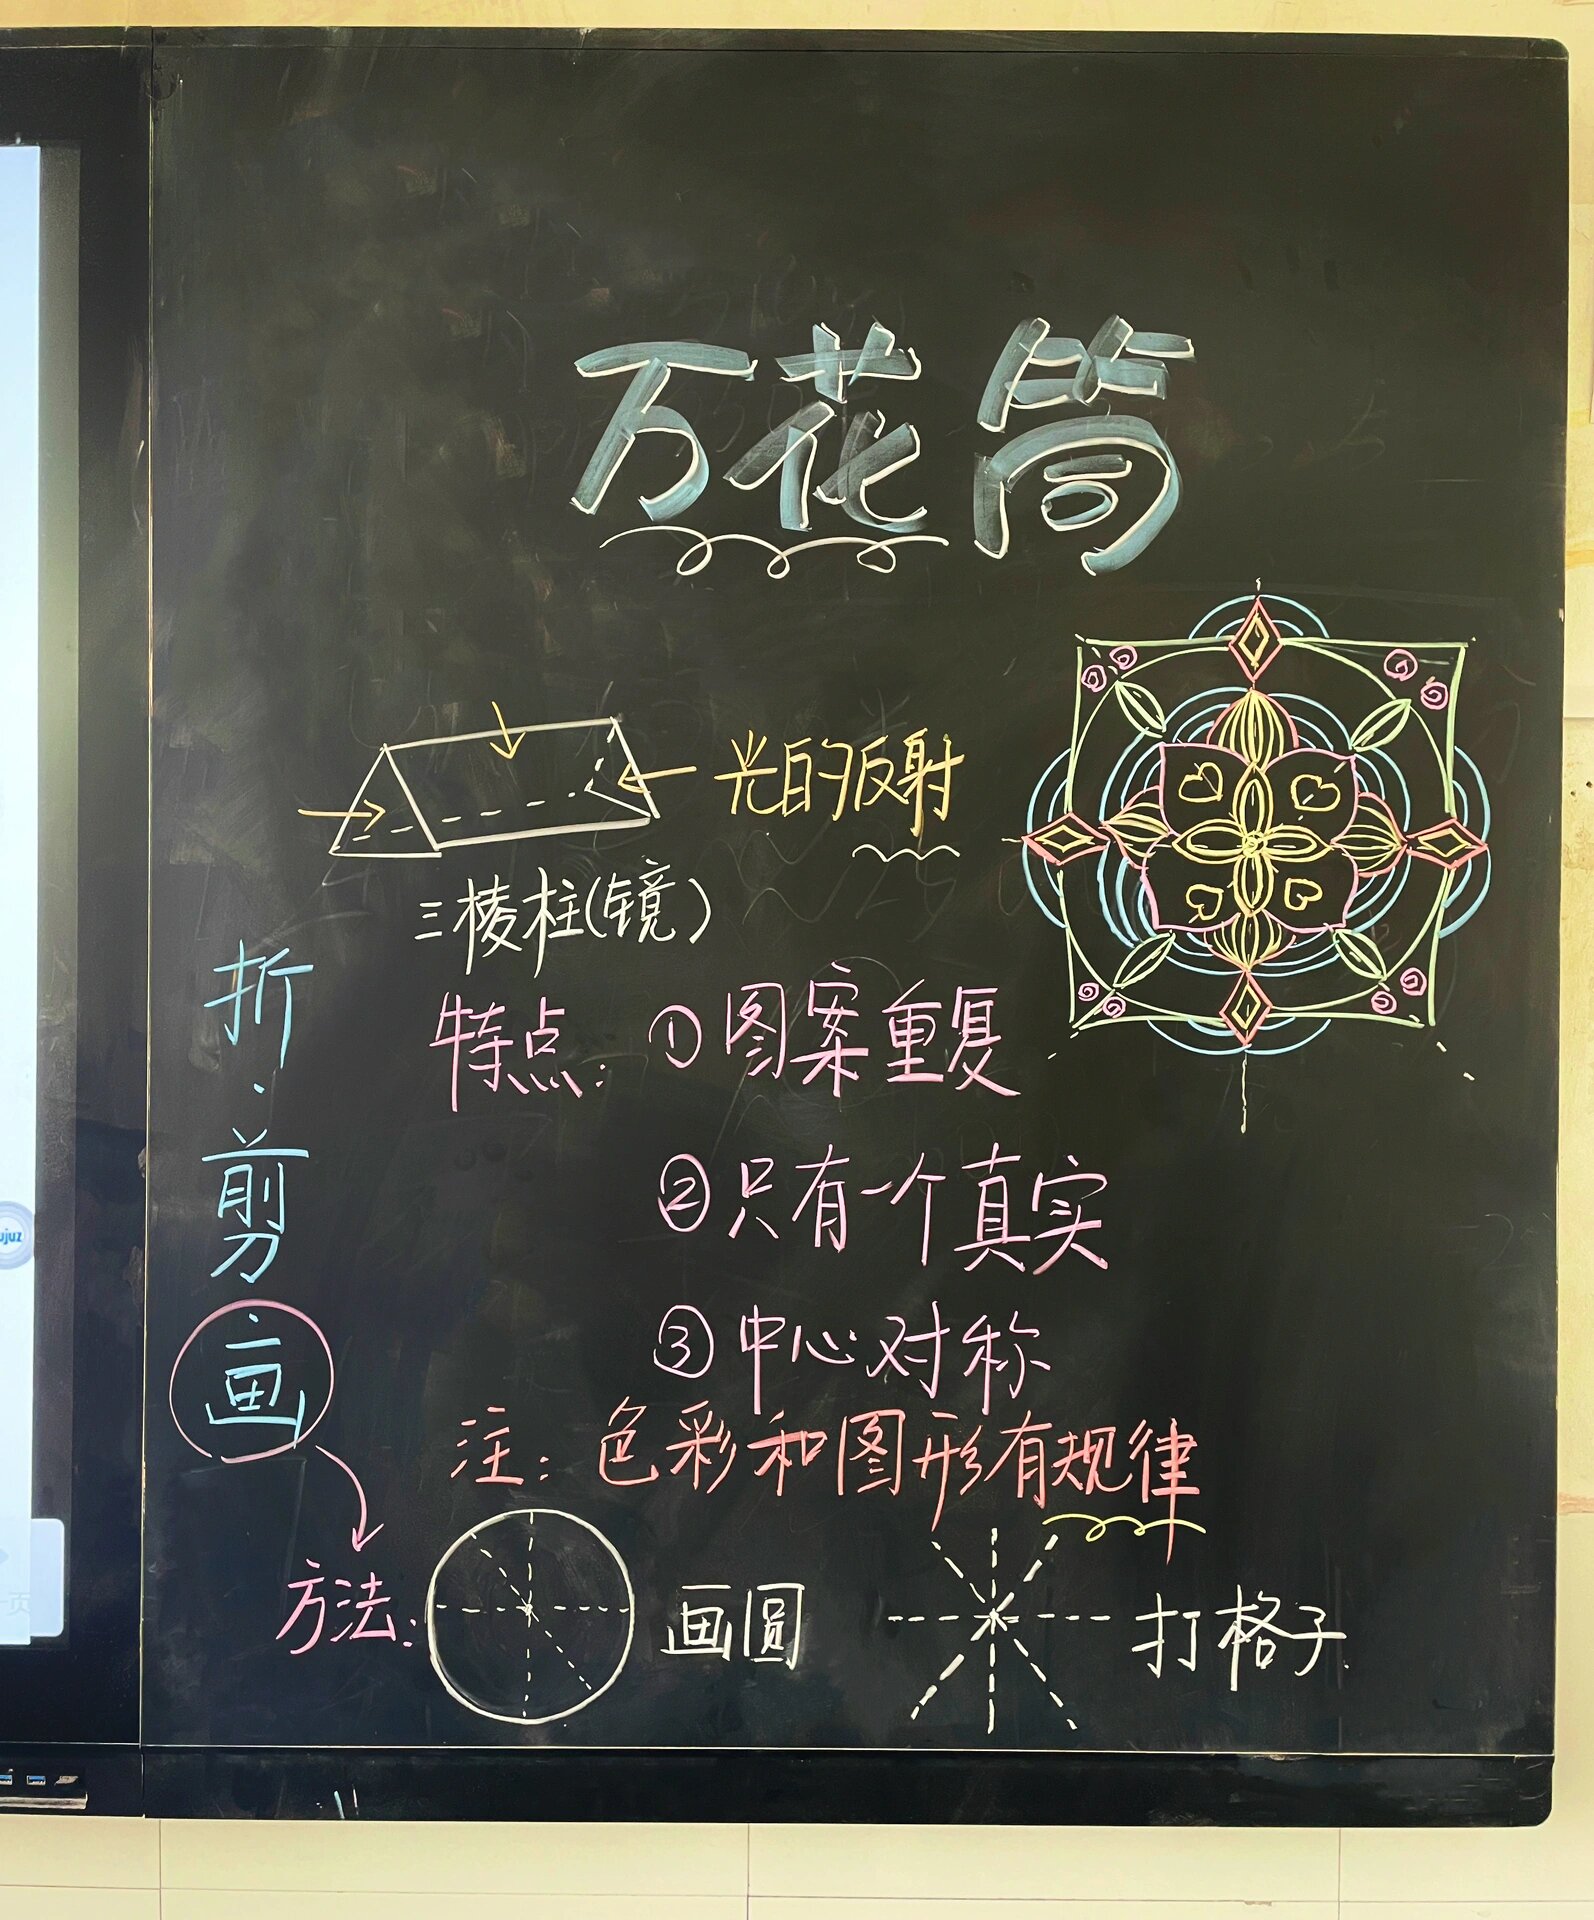 万花筒
光的反射
三棱柱(镜)
折·剪
画
特点: ①图案重复
②只有一个真实
③中心对称
注: 色彩和图形有规律
方法: 画圆 打格子
ujuz